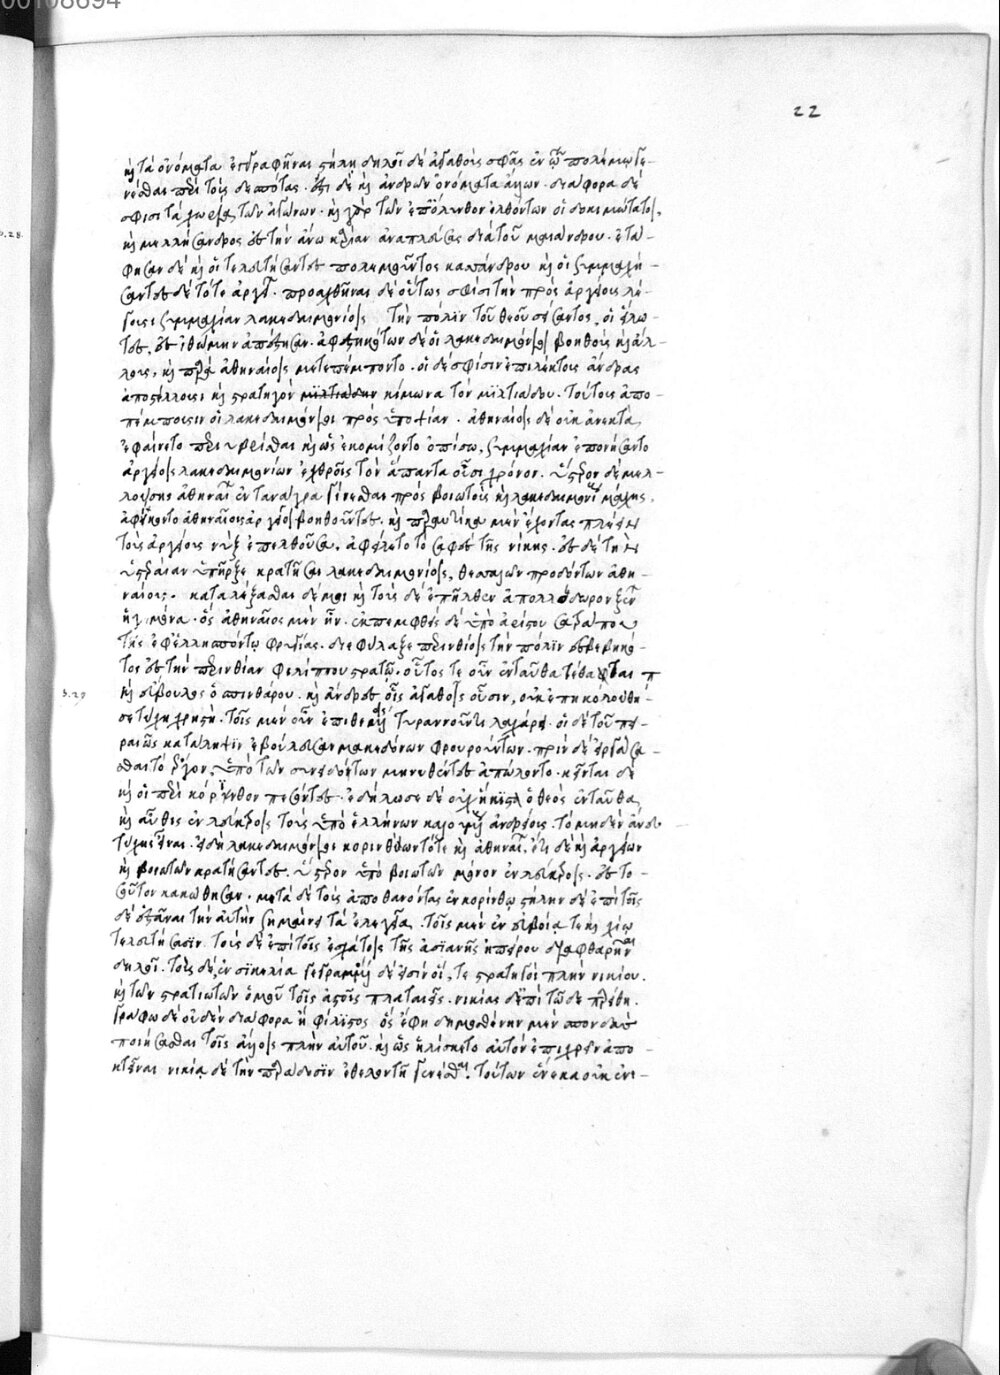 καὶ τὰ ὀνόματα ἐγγραφῆναι στήλη, δηλοῖ δὲ ἀγαθοὺς σφᾶς ἐν τῶ πολέμω γε-
νέσθαι περὶ τοὺς δεσπότας. ἔστι δὲ καὶ ἀνδρῶν ὀνόματα ἄλλων. διάφορα δέ
σφισι τὰ χωρία τῶν ἀγώνων. καὶ γὰρ τῶν ἐπ' ὄλυνθον ἐλθόντων οἱ δοκιμώτατοι,
καὶ μελήσανδρος ἐς τὴν ἄνω καρίαν ἀναπλεύσας διὰ τοῦ μαιάνδρου. ἐτά-
φησαν δὲ καὶ οἱ τελευτήσαντες πολεμοῦντος κασάνδρου καὶ οἱ συμμαχή-
σαντες δὲ τότε ἀργείων. πραχθῆναι δὲ οὕτως σφίσι τὴν πρὸς ἀργείους λέ-
γουσι συμμαχίαν λακεδαιμονίοις τὴν πόλιν τοῦ θεοῦ σείσαντος, οἱ εἵλω-
τες, ἐς ἰθώμην ἀπέστησαν. ἀφεστηκότων δὲ οἱ λακεδαιμόνιοι βοηθοὺς καὶ ἄλ-
λους, καὶ παρὰ ἀθηναίοις μετεπέμποντο. οἱ δὲ σφίσιν ἐπιλέκτους ἄνδρας
ἀποστέλλουσι καὶ στρατηγὸν μιλτιάδην κίμωνα τὸν μιλτιάδου. τούτους ἀπο-
πέμπουσιν οἱ λακεδαιμόνιοι πρὸς ὑποψίαν. ἀθηναίοις δὲ οὐκ ἀνεκτὰ
ἐφαίνετο περιυβρίσθαι καὶ ὡς ἐκομίζοντο ὀπίσω, συμμαχίαν ἐποιήσαντο
ἀργείοις λακεδαιμονίων ἐχθροῖς τὸν ἅπαντα οὖσι χρόνον. ὕστερον δὲ μελ-
λούσης ἀθηναίων ἐν τανάγρα γίνεσθαι πρὸς βοιωτοὺς καὶ λακεδαιμονίους μάχης,
ἀφίκοντο ἀθηναίοις ἀργεῖοι βοηθοῦντες. καὶ παραυτίκα μὲν ἔχοντας πλέον
τοὺς ἀργείους νὺξ ἐπελθοῦσα, ἀφείλετο τὸ σαφὲς τῆς νίκης. ἐς δὲ τὴν
ὑστεραίαν ὑπῆρξε κρατῆσαι λακεδαιμονίοις, θεσσαλῶν προδόντων ἀθη-
ναίους. καταλέξασθαι δέ μοι καὶ τοὺς δὲ ἐπῆλθεν ἀπολλόδωρον ξένων
ἡγεμόνα. ὃς ἀθηναῖος μὲν ἦν. ἐκπεμφθεὶς δὲ ὑπὸ ἀρσίτου σατράπου
τῆς ἐφ' ἑλλησπόντω φρυγίας. διεφύλαξε περινθίοις τὴν πόλιν ἐσβεβληκό-
τος ἐς τὴν περινθίαν φιλίππου στρατῶ. οὗτός τε οὖν ἐνταῦθα τέθαπται
καὶ εὔβουλος ὁ σπινθάρου. καὶ ἄνδρες οἷς ἀγαθοῖς οὖσιν, οὐκ ἐπηκολούθη-
σε τύχη χρηστή. τοῖς μὲν οὖν ἐπιθεμένοις τυραννοῦντι λαχάρει. οἱ δὲ τοῦ πει-
ραιῶς κατάληψιν ἐβούλευσαν μακεδόνων φρουρούντων. πρὶν δὲ ἐργάσα-
σθαι τὸ ἔργον, ὑπὸ τῶν συνειδότων μηνυθέντες ἀπώλοντο. κεῖνται δὲ
καὶ οἱ περὶ κόρινθον πεσόντες. ἐδήλωσε δὲ οὐχ ἥκιστα ὁ θεὸς ἐνταῦθα,
καὶ αὖθις ἐν λεύκτροις τοὺς ὑπὸ ἑλλήνων καλουμένους ἀνδρείους. τὸ μηδὲν ἄνευ
τύχης εἶναι. εἰ δὴ λακεδαιμόνιοι κορινθίων τότε καὶ ἀθηναίων, ἔτι δὲ καὶ ἀργείων
καὶ βοιωτῶν κρατήσαντες. ὕστερον ὑπὸ βοιωτῶν μόνων ἐν λεύκτροις. ἐς το-
σοῦτον κακωθῆσαν. μετὰ δὲ τοὺς ἀποθανόντας ἐν κορίνθω στήλην δὲ ἐπὶ τοῖς
δὲ ἑστᾶναι τὴν αὐτὴν σημαίνει τὰ ἐλεγεῖα. τοῖς μὲν ἐν εὐβοία τε καὶ χίω
τελευτήσασιν. τοὺς δὲ ἐπὶ τοῖς ἐσχάτοις τῆς ἀσιανῆς ἠπείρου διαφθαρῆναι
δηλοῖ. τοὺς δὲ, ἐν σικελία γεγραμμένοι δέ εἰσιν οἵ, τε στρατηγοὶ πλὴν νικίου.
καὶ τῶν στρατιωτῶν ὁμοῦ τοῖς ἀστοῖς πλαταιεῖς. νικίας δὲ ἐπὶ τῶδε παρείθη.
γράφω δὲ οὐδὲν διάφορα ἢ φίλιστος ὃς ἔφη δημοσθένην μὲν σπονδὰς
ποιήσασθαι τοῖς ἄλλοις πλὴν αὐτοῦ. καὶ ὡς ἡλίσκετο αὑτὸν ἐπιχειρεῖν ἀπο-
κτεῖναι νικία δὲ τὴν παράδοσιν ἐθελοντῆ γενέσθαι. τούτων ἕνεκα οὐκ ἐνε-